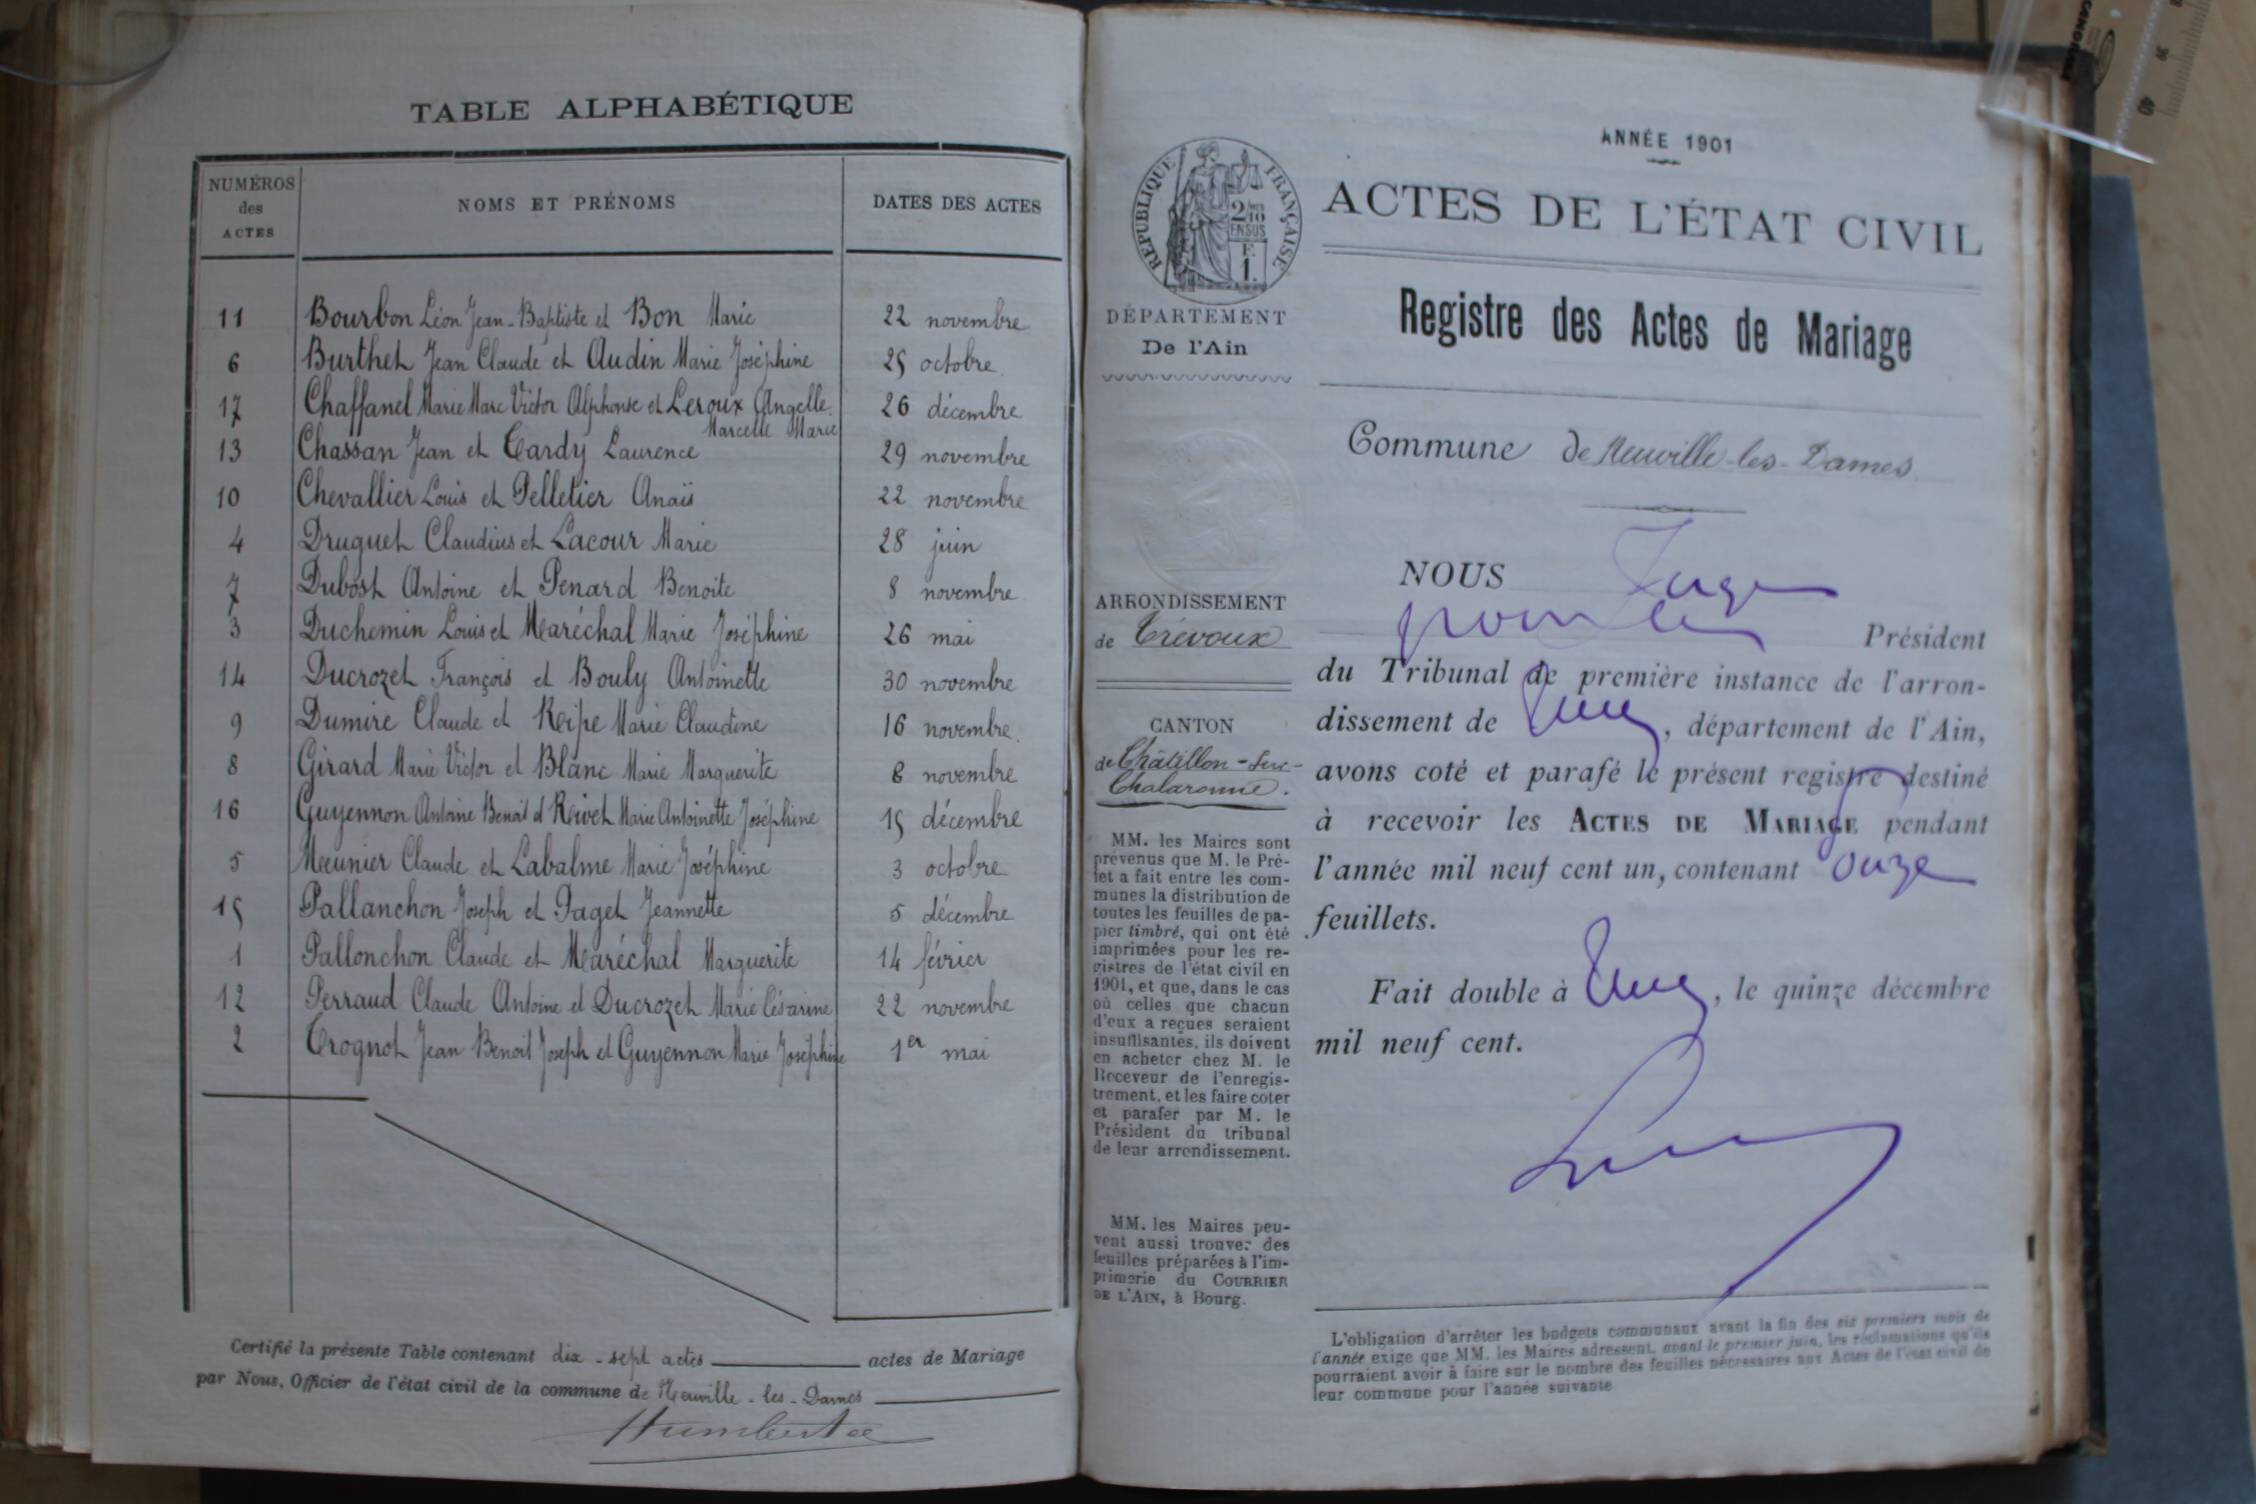 TABLE ALPHABÉTIQUE
NUMÉROS des ACTES NOMS ET PRÉNOMS DATES DES ACTES
11 Bourbon Léon Jean-Baptiste et Bon Marie 22 novembre
6 Burthet Jean Claude et Audin Marie Joséphine 25 octobre
17 Chaffanel Marie Marc Victor Alphonse et Leroux Angelle 26 décembre
Marcelle Marie
13 Chassan Jean et Tardy Laurence 29 novembre
10 Chevallier Louis et Pelletier Anaïs 22 novembre
4 Druguet Claudius et Lacour Marie 28 juin
7 Dubost Antoine et Penard Benoite 8 novembre
3 Duchemin Louis et Maréchal Marie Joséphine 26 mai
14 Ducrozet François et Bouly Antoinette 30 novembre
9 Dumire Claude et Marie Claudine 16 novembre
8 Girard Marie Victor et Blanc Marie Marguerite 8 novembre
16 Guyennon Antoine Benoit et Rivet Marie Antoinette Joséphine 15 décembre
5 Meunier Claude et Labalme Marie Joséphine 3 octobre
15 Pallanchon Joseph et Paget Jeannette 5 décembre
1 Pallonchon Claude et Maréchal Marguerite 14 février
12 Perraud Claude Antoine et Ducrozet Marie Césarine 22 novembre
2 Trognot Jean Benoit Joseph et Guyennon Marie Joséphine 1er mai
Certifié la présente Table contenant dix-sept actes actes de Mariage
par Nous, Officier de l'état civil de la commune de Neuville-les-Dames
Humbert
RÉPUBLIQUE FRANÇAISE
2/10 EN SUS
F. 1.
DÉPARTEMENT
De l'Ain
ARRONDISSEMENT
de Trévoux
CANTON
de Châtillon-sur-
Chalaronne.
MM. les Maires sont
prévenus que M. le Pré-
fet a fait entre les com-
munes la distribution de
toutes les feuilles de pa-
pier timbré, qui ont été
imprimées pour les re-
gistres de l'état civil en
1901, et que, dans le cas
où celles que chacun
d'eux a reçues seraient
insuffisantes, ils doivent
en acheter chez M. le
Receveur de l'enregis-
trement, et les faire coter
et parafer par M. le
Président du tribunal
de leur arrondissement.
MM. les Maires peu-
vent aussi trouver des
feuilles préparées à l'im-
primerie du COURRIER
DE L'AIN, à Bourg.
ANNÉE 1901
ACTES DE L'ÉTAT CIVIL
Registre des Actes de Mariage
Commune de Neuville-les-Dames
NOUS Juge
pour le Président
du Tribunal de première instance de l'arron-
dissement de , département de l'Ain,
avons coté et parafé le présent registre destiné
à recevoir les ACTES DE MARIAGE pendant
l'année mil neuf cent un, contenant onze
feuillets.
Fait double à , le quinze décembre
mil neuf cent.
L'obligation d'arrêter les budgets communaux avant la fin des six premiers mois de
l'année exige que MM. les Maires adressent, avant le premier juin, les réclamations qu'ils
pourraient avoir à faire sur le nombre des feuilles nécessaires aux Actes de l'état civil de
leur commune pour l'année suivante.